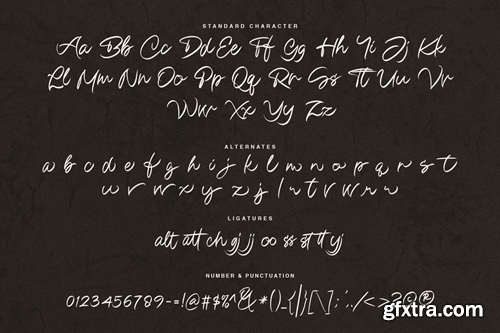 STANDARD CHARACTER
Aa Bb Cc Dd Ee Ff Gg Hh Ii Jj Kk
Ll Mm Nn Oo Pp Qq Rr Ss Tt Uu Vv
Ww Xx Yy Zz
ALTERNATES
a b c d e f g h i j k l m n o p q r s t
u v w x y z
LIGATURES
alt att ch gj jj oo ss st tt yj
NUMBER & PUNCTUATION
0123456789-=!@#$%^&*()_{|}[\]:;'./<>?©®
gfxtra.com